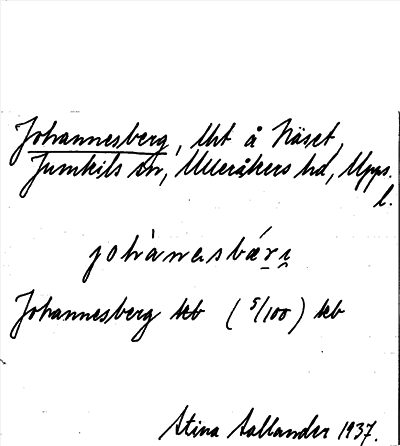 Johannesberg, lht å Näset,
Jumkils sn, Ulleråkers hd, Upps.
l.
johànəsbǽrı
Johannesberg kb (5/100) kb
Stina Sallander 1937.